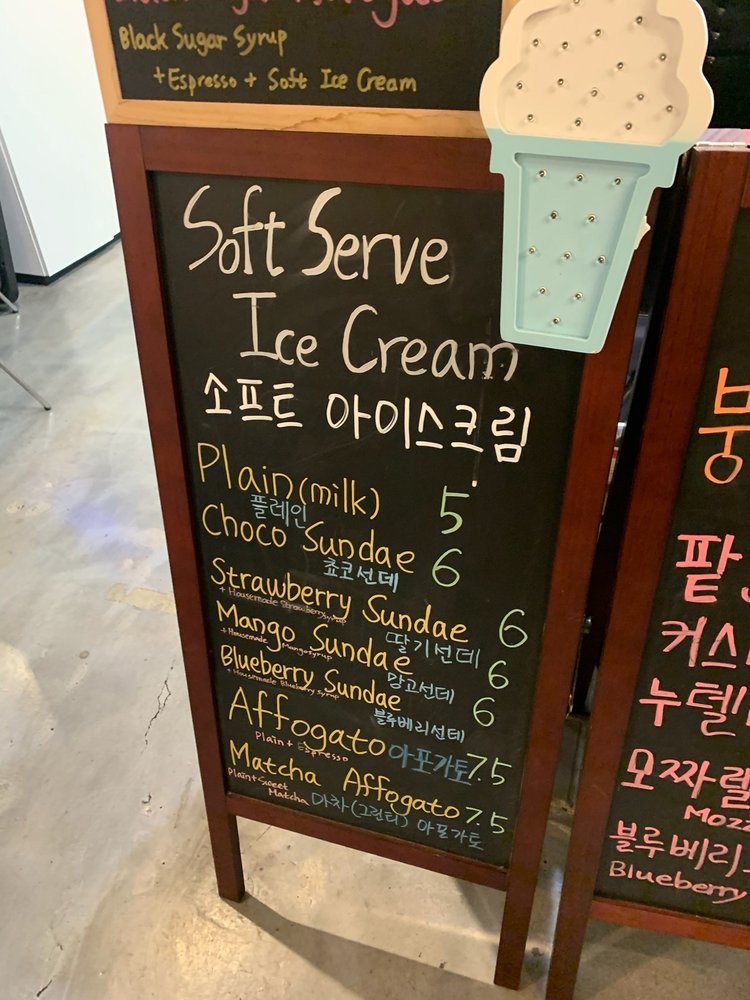 Black Sugar Syrup
+ Espresso + Soft Ice Cream
Soft Serve
Ice Cream
소프트 아이스크림
Plain (milk) 5
플레인
Choco Sundae 6
쵸코선데
Strawberry Sundae 6
+ Housemade Strawberry syrup
딸기선데
Mango Sundae 6
+ Housemade Mango syrup
망고선데
Blueberry Sundae 6
+ Housemade Blueberry syrup
블루베리선데
Affogato 아포가토 7.5
Plain + Espresso
Matcha Affogato 7.5
Plain + Sweet
Matcha 마차 (그린티) 아포가토
붕
팥
커스
누텔
모짜렐
Mozz
블루베리
Blueberry